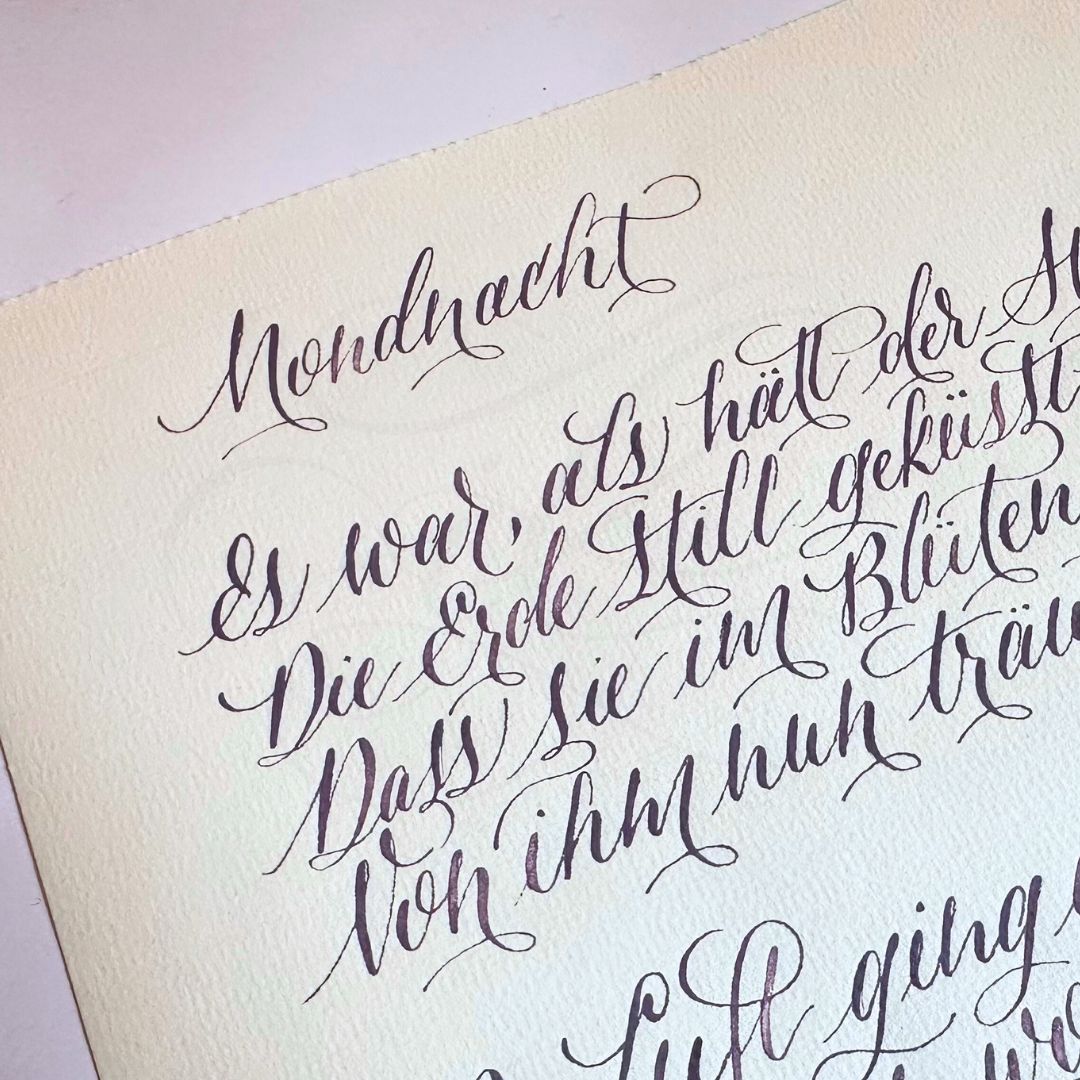 Mondnacht
Es war, als hätt der
Die Erde still geküsst
Dass sie im Blüten
Von ihm nun träu
Luft ging